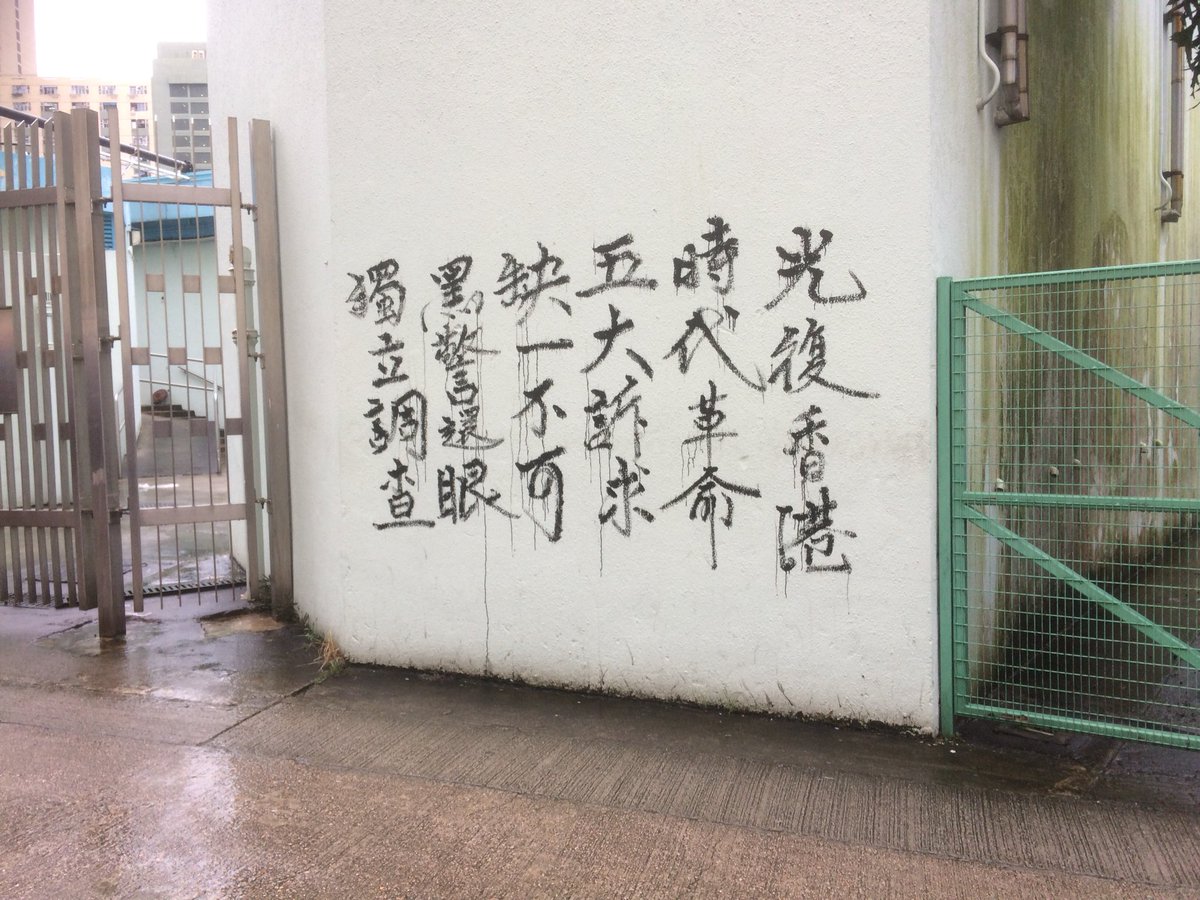 光復香港
時代革命
五大訴求
缺一不可
黑警還眼
獨立調查